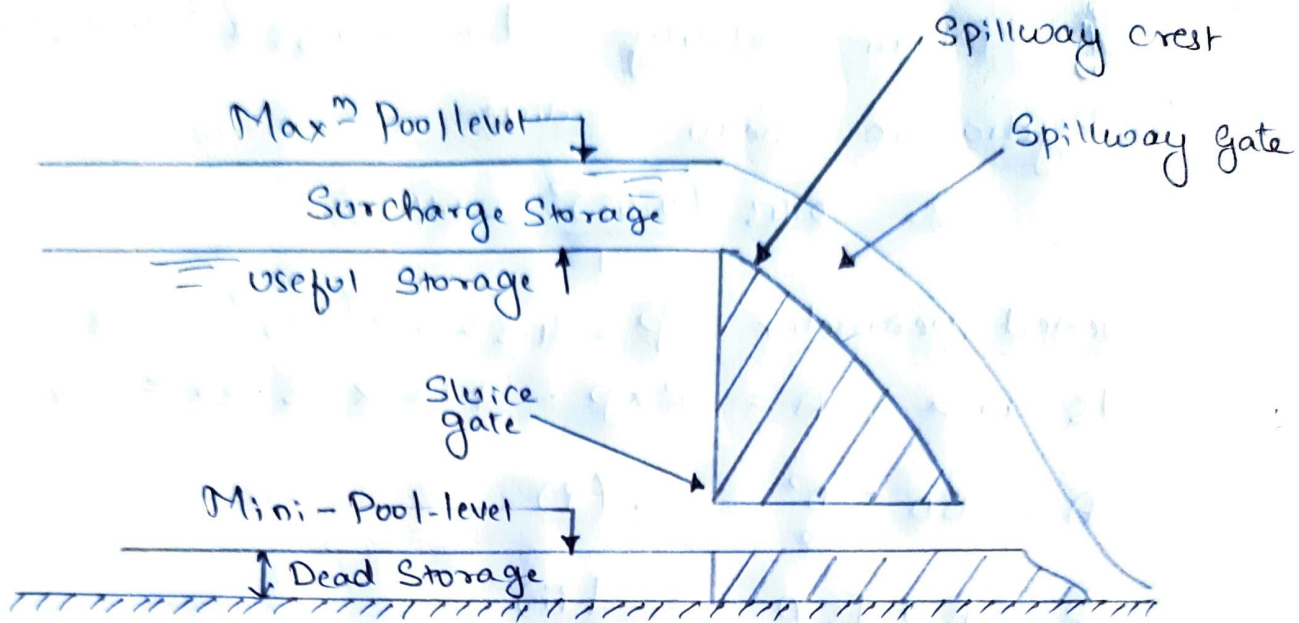 Spillway crest
Maxᵐ Pool level
Spillway gate
Surcharge Storage
Useful Storage
Sluice
gate
Mini - Pool-level
Dead Storage